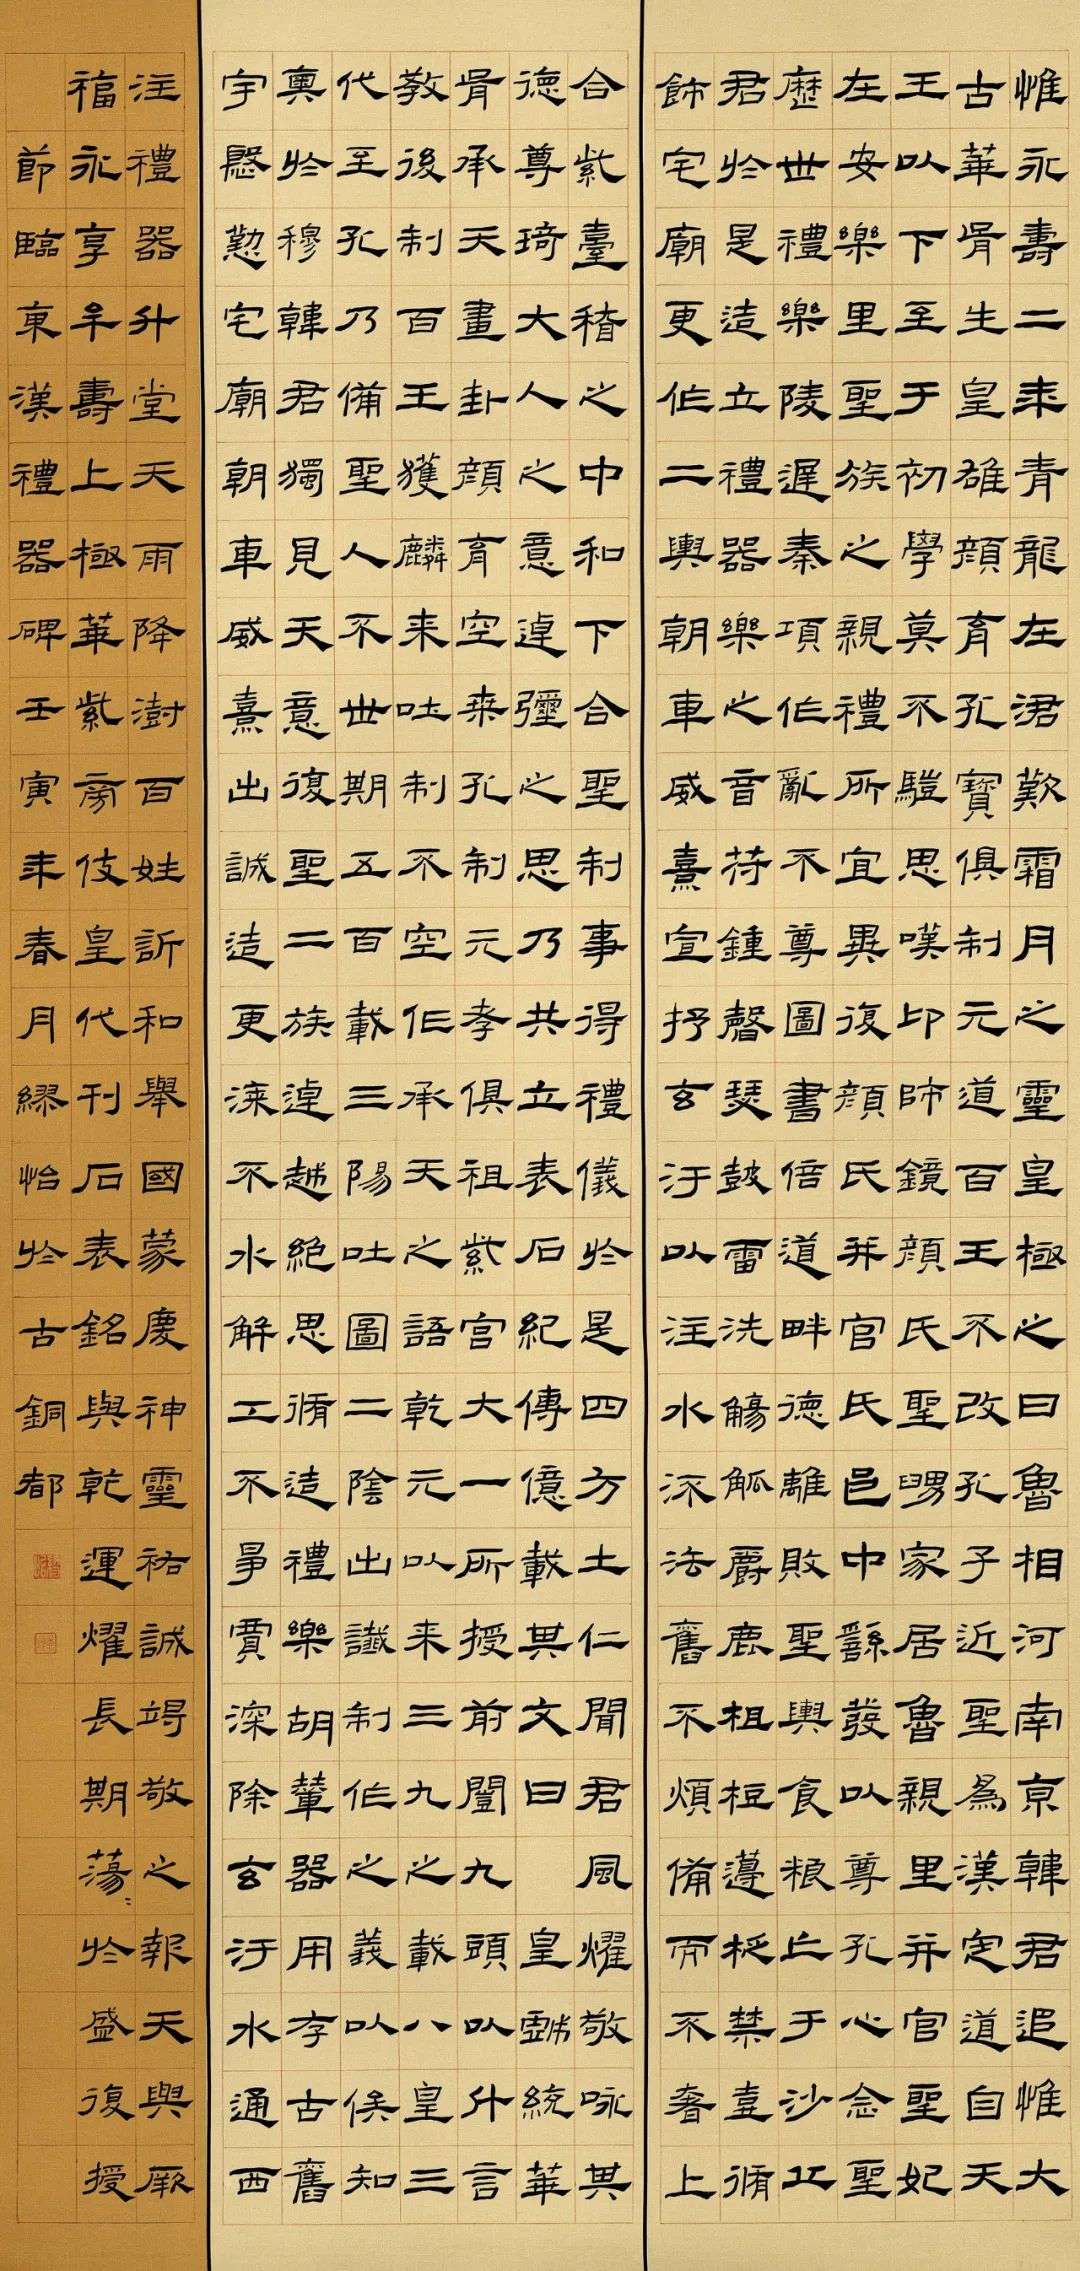 惟永壽二年青龍在涒歎霜月之靈皇極之日魯相河南京韓君追惟大
古華胥生皇雄顏育孔寶俱制元道百王不改孔子近聖為漢定道自天
王以下至于初學莫不驥思嘆卬師鏡顏氏聖舅家居魯親里并官聖妃
在安樂里聖族之親禮所宜異復顏氏并官氏邑中繇發以尊孔心念聖
歷世禮樂陵遲秦項作亂不尊圖書倍道畔德離敗聖輿食粮亡于沙丘
君於是造立禮器樂之音符鍾磬瑟鼓雷洗觴觚爵鹿柤梪籩柉禁壺脩
飾宅廟更作二輿朝車威熹宣抒玄汙以注水流法舊不煩備而不奢上
合紫臺稽之中和下合聖制事得禮儀於是四方土仁聞君風燿敬咏其
德尊琦大人之意逴彌之思乃共立表石紀傳億載其文曰 皇戲統華
胥承天畫卦顏育空桑孔制元孝俱祖紫宮大一所授前闓九頭以什言
教後制百王獲麟来吐制不空作承天之語乾元以来三九之載八皇三
代至孔乃備聖人不世期五百載三陽吐圖二陰出讖制作之義以俟知
奧於穆韓君獨見天意復聖二族逴越絕思脩造禮樂胡輦器用存古舊
宇慇懃宅廟朝車威熹出誠造更漆不水解工不爭賈深除玄汙水通西
注禮器升堂天雨降澍百姓訢和舉國蒙慶神靈祐誠竭敬之報天與厥
福永享牟壽上極華紫旁伎皇代刊石表銘與乾運燿長期蕩々於盛復授
節臨東漢禮器碑壬寅年春月繆怡於古銅都